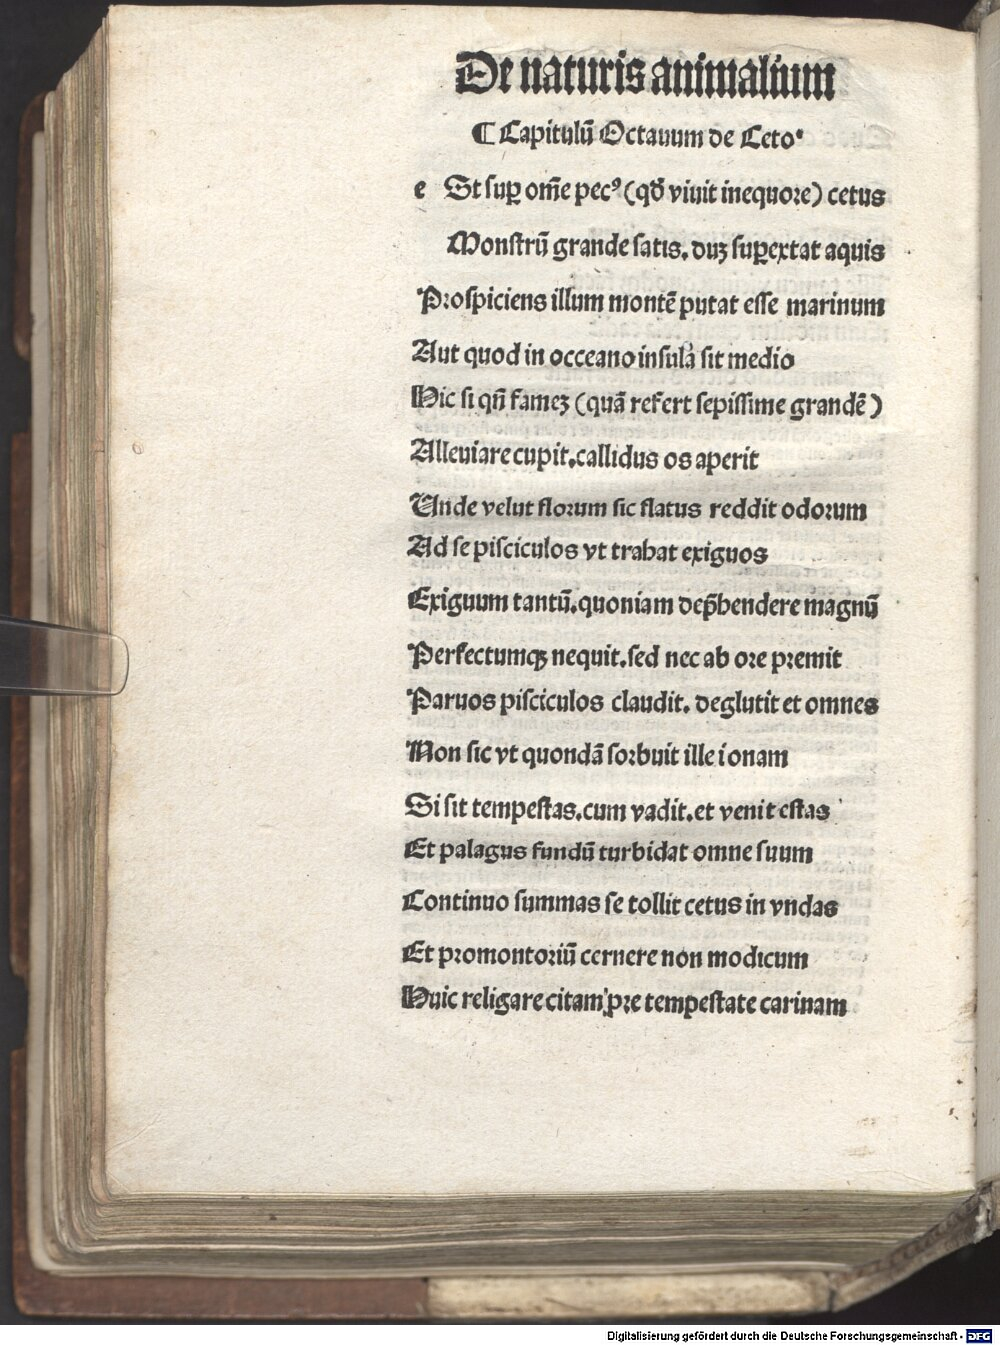 De naturis animalium
¶ Capitulū Octauum de Ceto.
e St suꝑ om̄e pecꝰ (qđ viuit inequore) cetus
Monstrū grande satis. duꝫ suꝑextat aquis
Prospiciens illum montē putat esse marinum
Aut quod in occeano insula sit medio
Hic si qñ fameꝫ (quā refert sepissime grandē)
Alleuiare cupit. callidus os aperit
Unde velut florum sic flatus reddit odorum
Ad se pisciculos vt trahat exiguos
Exiguum tantū. quoniam dep̄hendere magnū
Perfectumqꝫ nequit. sed nec ab ore premit
Paruos pisciculos claudit. deglutit et omnes
Non sic vt quondā sorbuit ille ionam
Si sit tempestas. cum vadit. et venit estas
Et palagus fundū turbidat omne suum
Continuo summas se tollit cetus in vndas
Et promontoriū cernere non modicum
Huic religare citam pre tempestate carinam
Digitalisierung gefördert durch die Deutsche Forschungsgemeinschaft - DFG